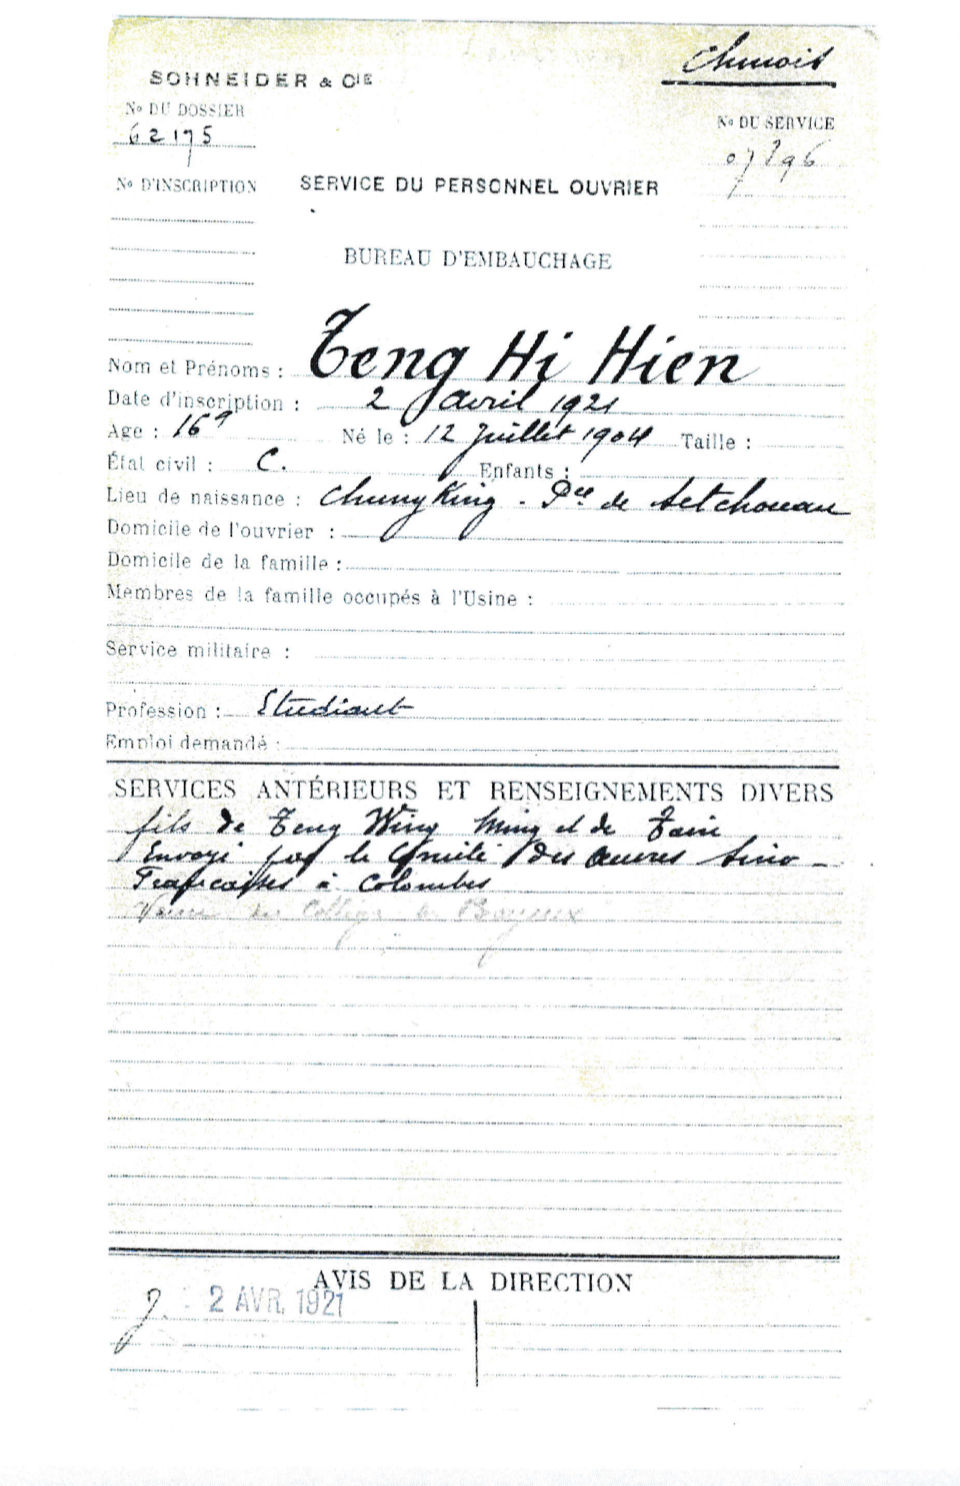 Chinois
SCHNEIDER & CIE
No DU DOSSIER
62175
No DU SERVICE
07396
No D'INSCRIPTION
SERVICE DU PERSONNEL OUVRIER
BUREAU D'EMBAUCHAGE
Nom et Prénoms : Teng Hi Hien
Date d'inscription : 2 avril 1921
Age : 16a Né le : 12 Juillet 1904 Taille :
État civil : C. Enfants :
Lieu de naissance : Chung King - Pce de Setchouan
Domicile de l'ouvrier :
Domicile de la famille :
Membres de la famille occupés à l'Usine :
Service militaire :
Profession : Etudiant
Emploi demandé :
SERVICES ANTÉRIEURS ET RENSEIGNEMENTS DIVERS
fils de Teng Wing Ming et de
Envoyé par le Comité des Œuvres Sino -
Françaises à Colombes
Venu du Collège de Bayeux
AVIS DE LA DIRECTION
2 AVR. 1921